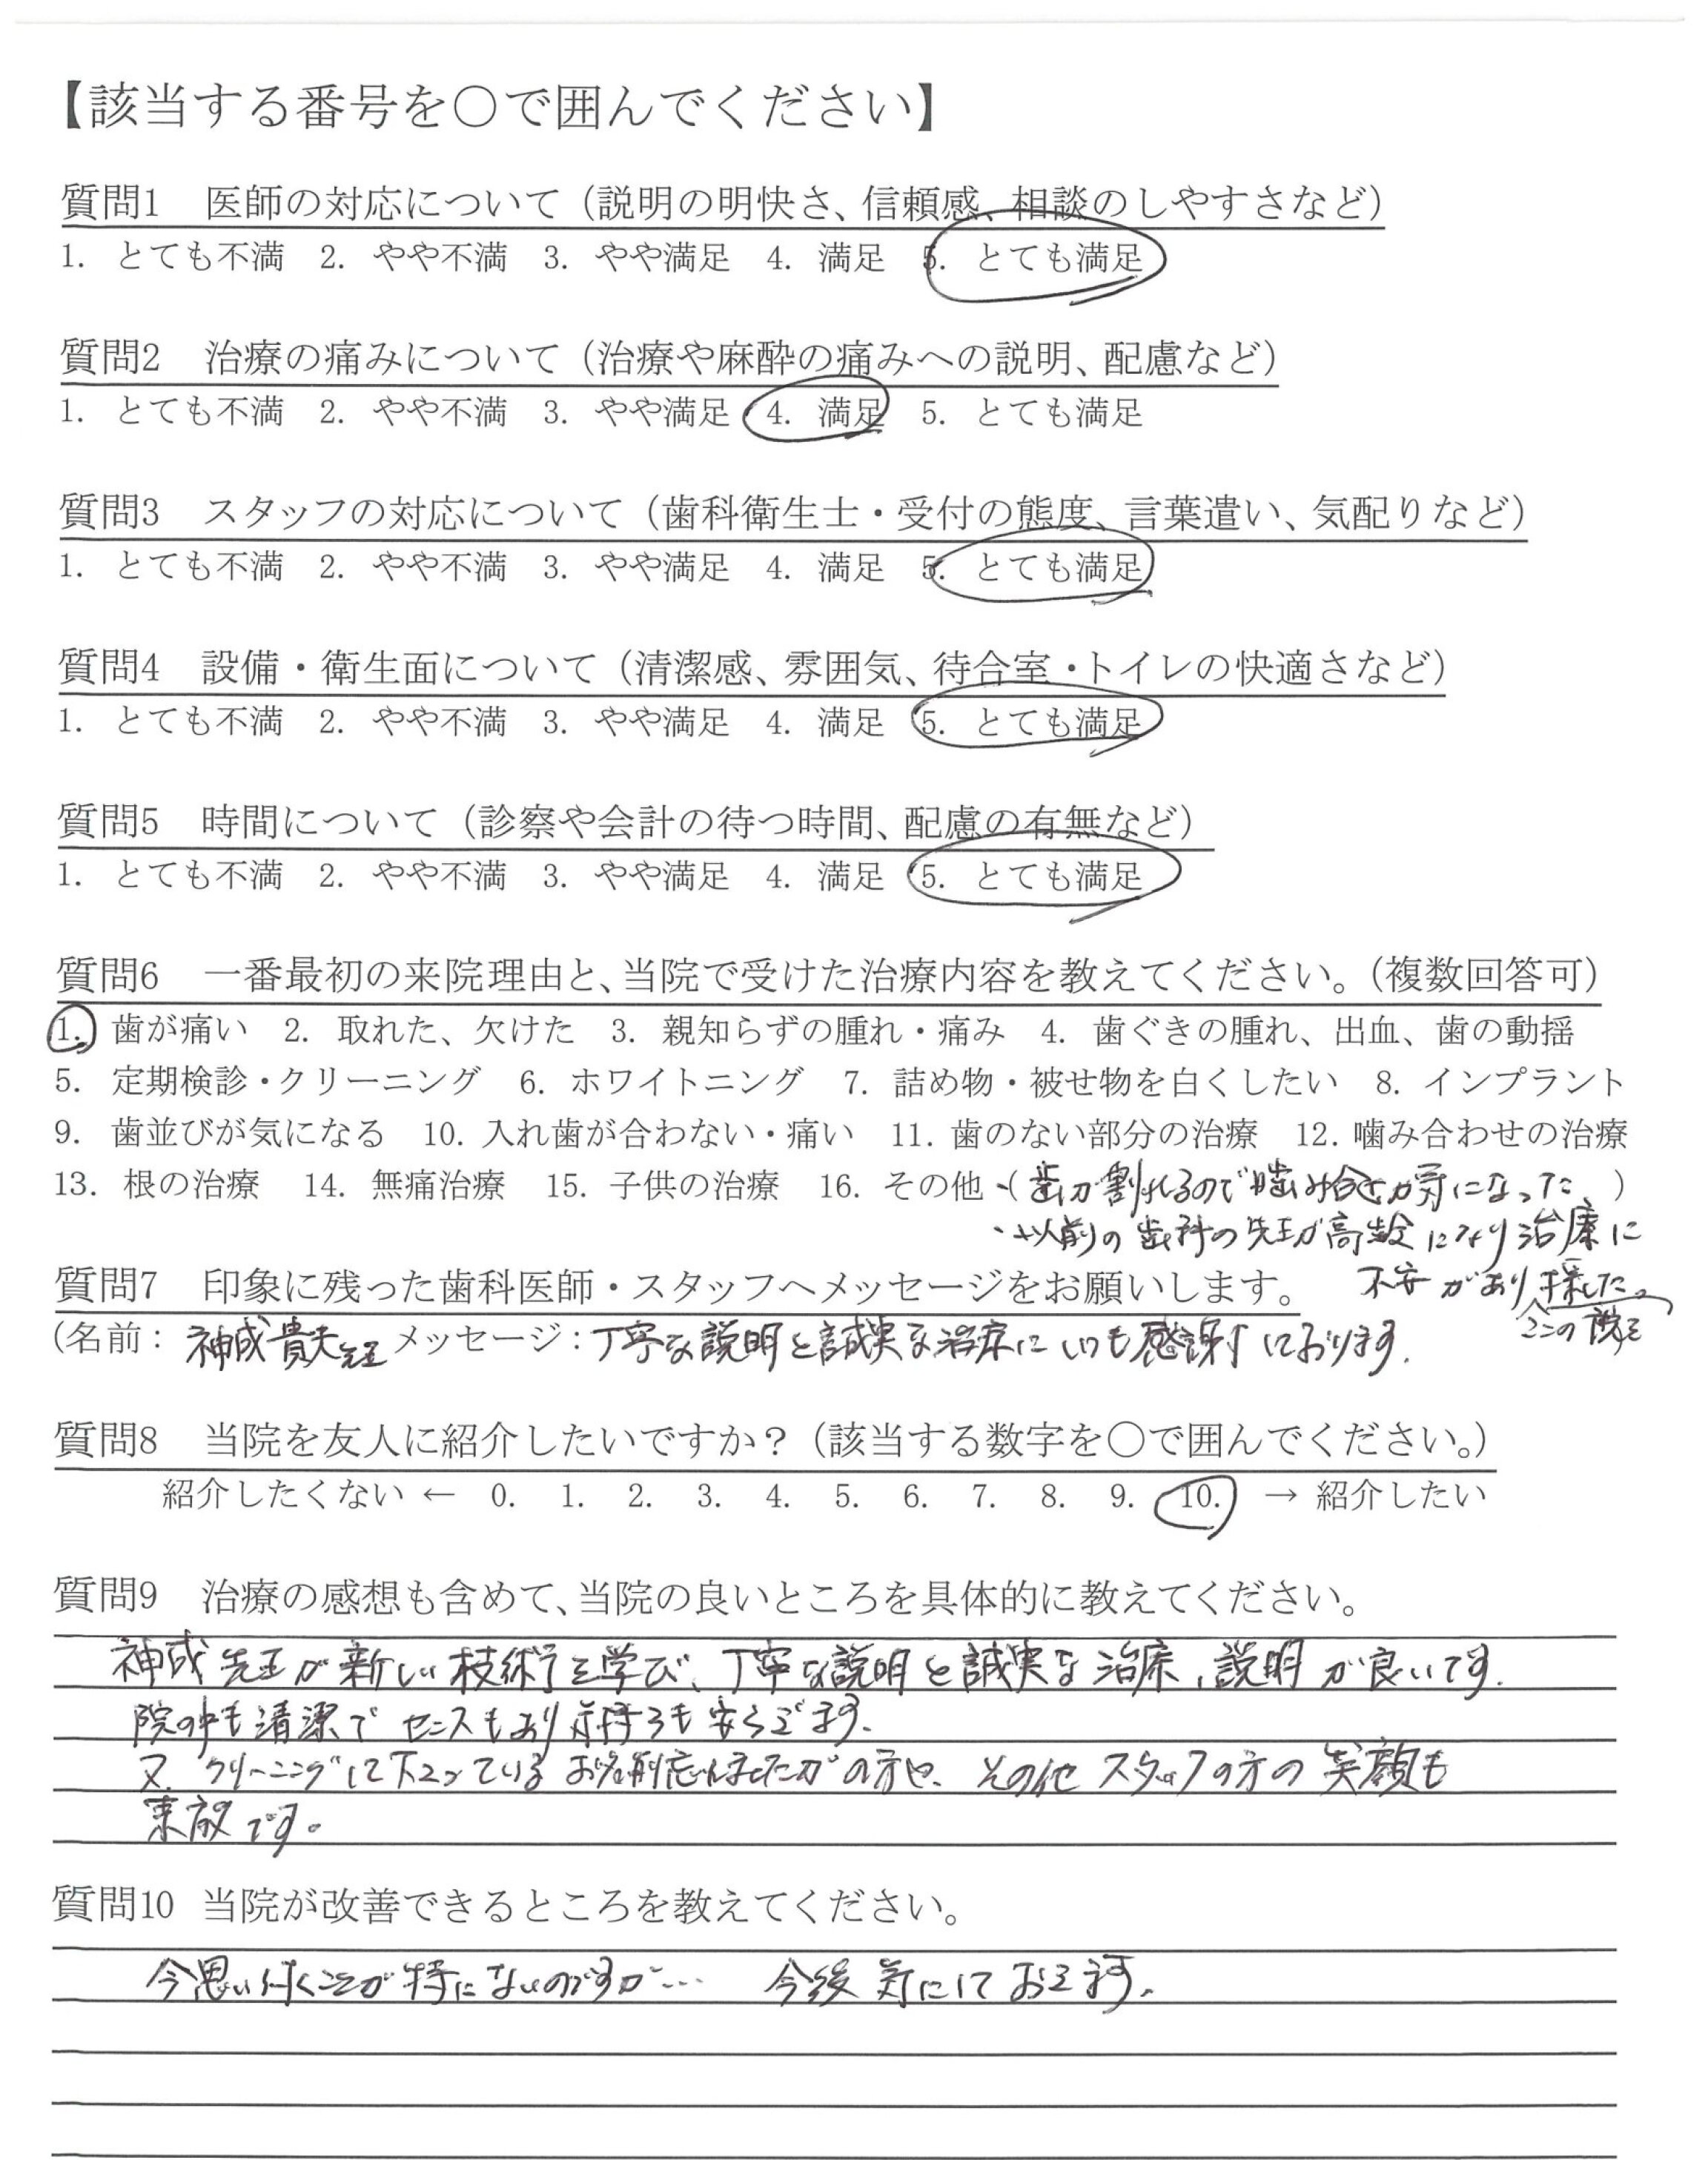 【該当する番号を〇で囲んでください】
質問1 医師の対応について（説明の明快さ、信頼感、相談のしやすさなど）
1. とても不満 2. やや不満 3. やや満足 4. 満足 5. とても満足
質問2 治療の痛みについて（治療や麻酔の痛みへの説明、配慮など）
1. とても不満 2. やや不満 3. やや満足 4. 満足 5. とても満足
質問3 スタッフの対応について（歯科衛生士・受付の態度、言葉遣い、気配りなど）
1. とても不満 2. やや不満 3. やや満足 4. 満足 5. とても満足
質問4 設備・衛生面について（清潔感、雰囲気、待合室・トイレの快適さなど）
1. とても不満 2. やや不満 3. やや満足 4. 満足 5. とても満足
質問5 時間について（診察や会計の待つ時間、配慮の有無など）
1. とても不満 2. やや不満 3. やや満足 4. 満足 5. とても満足
質問6 一番最初の来院理由と、当院で受けた治療内容を教えてください。（複数回答可）
1. 歯が痛い 2. 取れた、欠けた 3. 親知らずの腫れ・痛み 4. 歯ぐきの腫れ、出血、歯の動揺
5. 定期検診・クリーニング 6. ホワイトニング 7. 詰め物・被せ物を白くしたい 8. インプラント
9. 歯並びが気になる 10. 入れ歯が合わない・痛い 11. 歯のない部分の治療 12. 噛み合わせの治療
13. 根の治療 14. 無痛治療 15. 子供の治療 16. その他・（歯が割れるので噛み合せが気になった、）
・以前の歯科の先生が高齢になり治療に
不安があり探した。
質問7 印象に残った歯科医師・スタッフへメッセージをお願いします。
ここの説を
（名前：神成貴夫先生 メッセージ：丁寧な説明と誠実な治療にいつも感謝しております。
質問8 当院を友人に紹介したいですか？（該当する数字を〇で囲んでください。）
紹介したくない ← 0. 1. 2. 3. 4. 5. 6. 7. 8. 9. 10. → 紹介したい
質問9 治療の感想も含めて、当院の良いところを具体的に教えてください。
神成先生が新しい技術を学び、丁寧な説明と誠実な治療、説明が良いです。
院の中も清潔でセンスもあり気持ちも安らぎます。
又、クリーニングして下さっているお名前忘れましたがの方や、その他スタッフの方の笑顔も
素敵です。
質問10 当院が改善できるところを教えてください。
今思い付くことが特にないのですが… 今後気にしておきます。